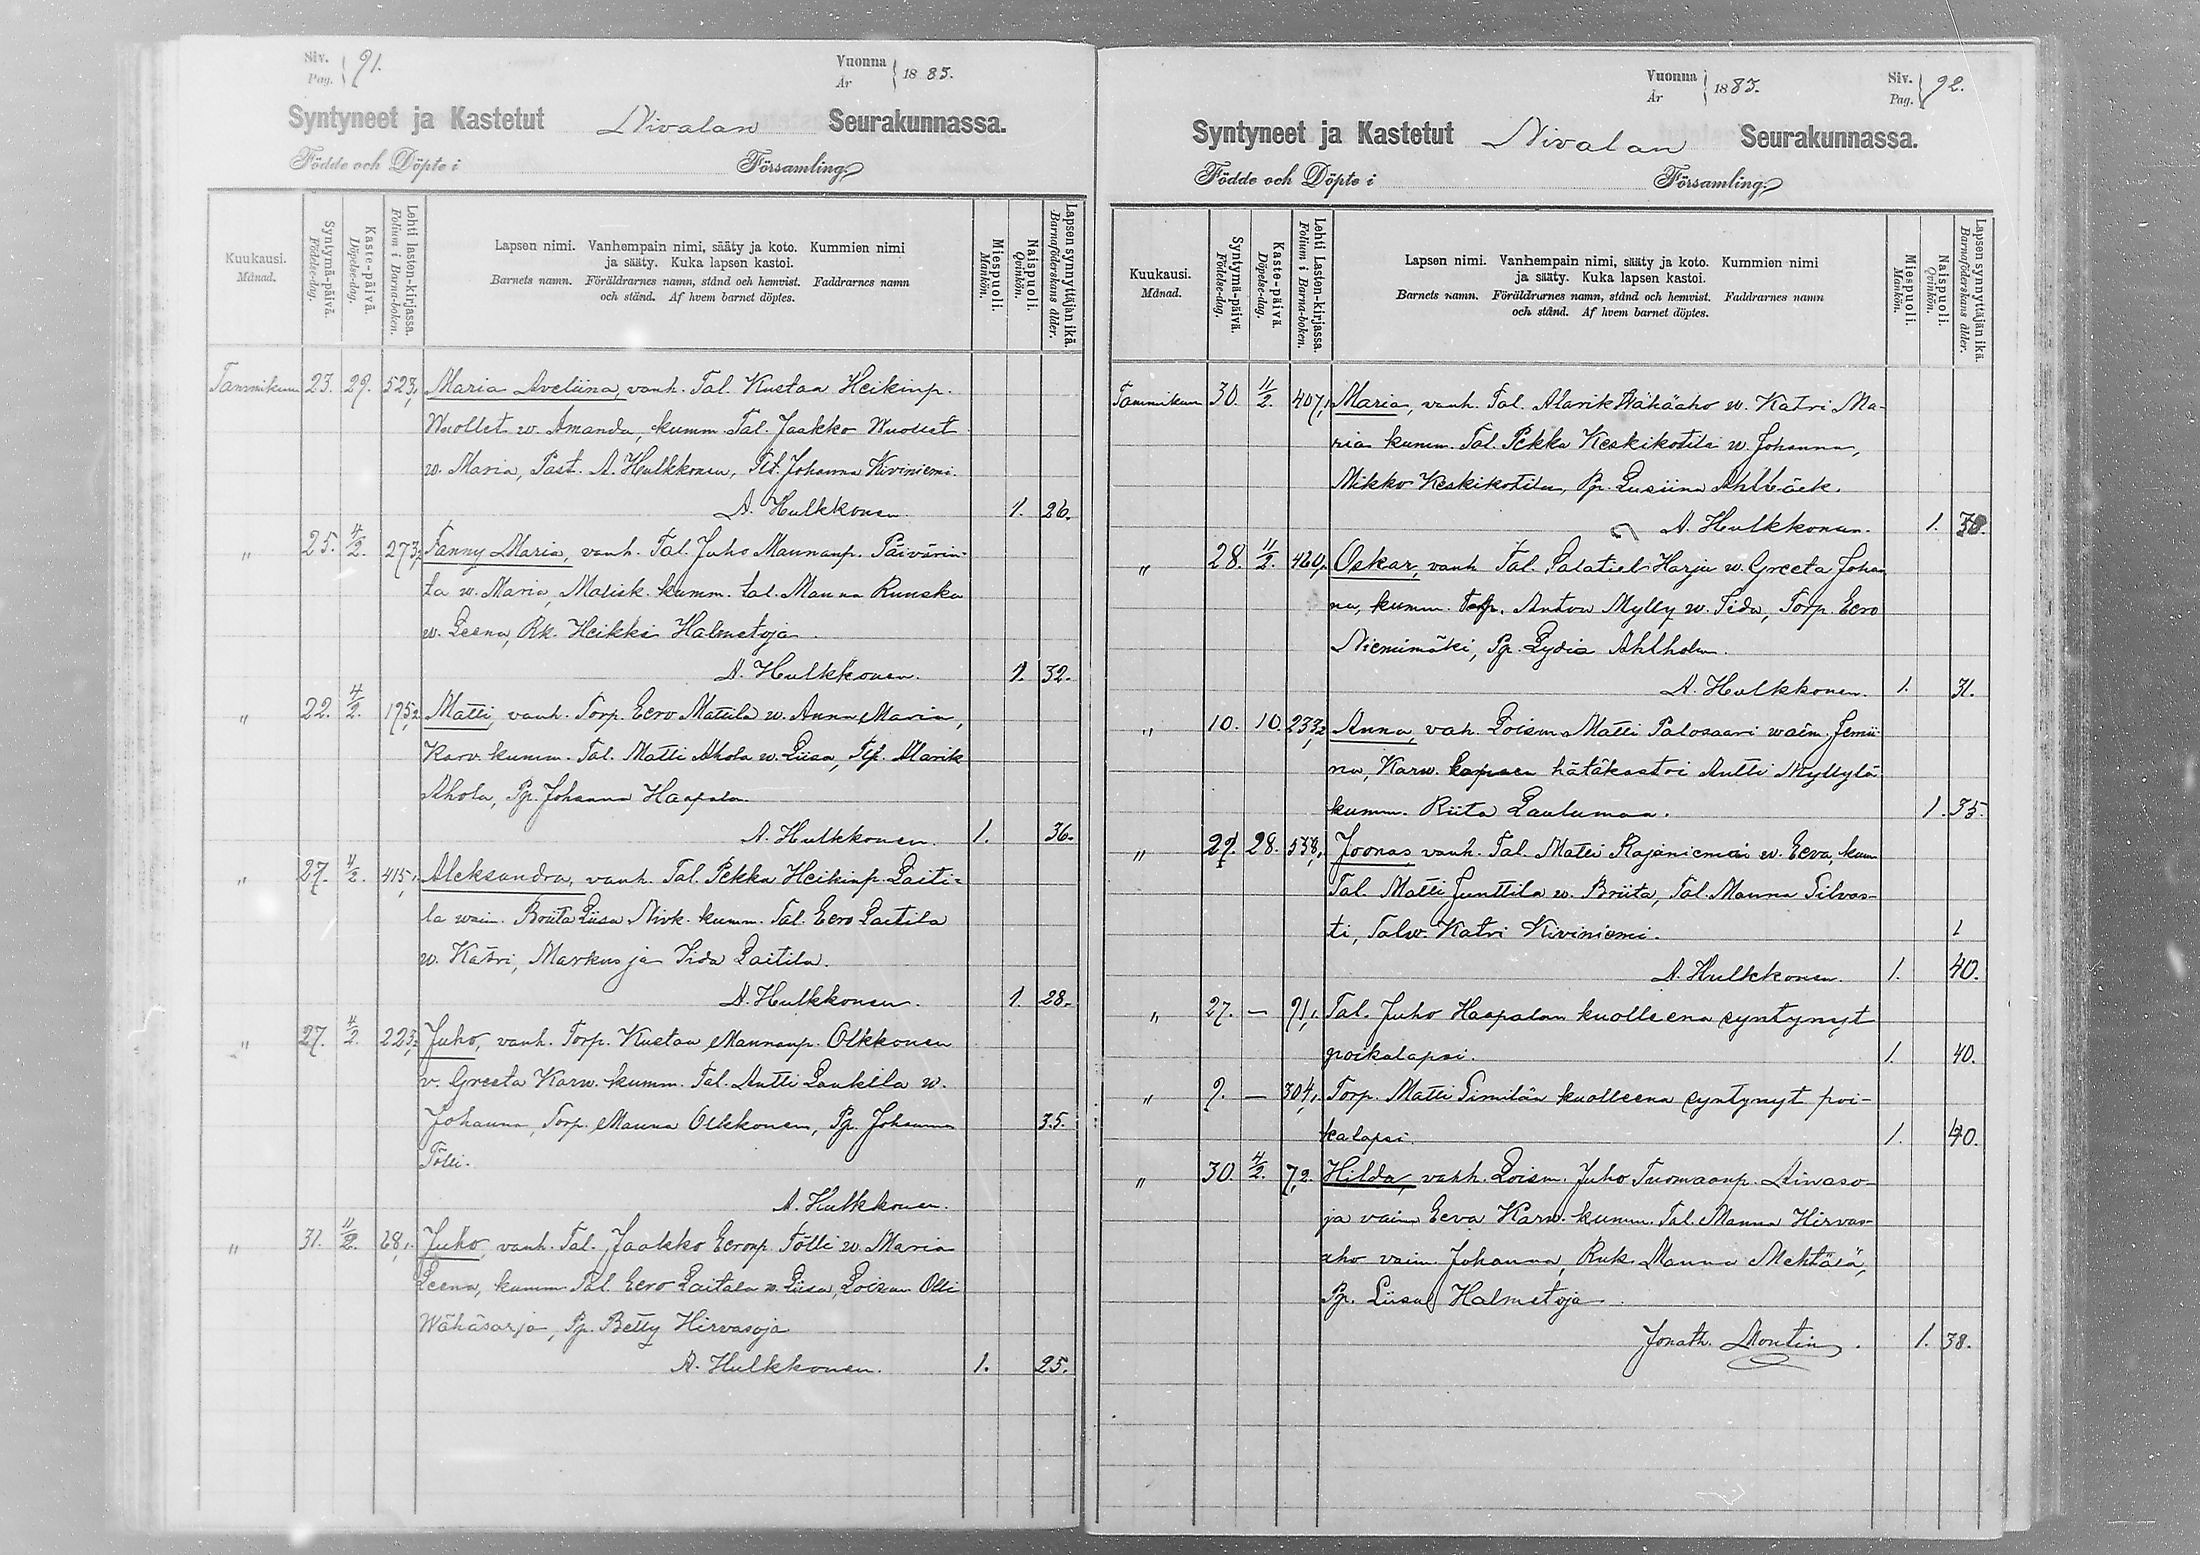 Siv. Pag. 91. Vuonna År 1883.
Syntyneet ja Kastetut Nivalan Seurakunnassa.
Födde och Döpte i Församling.
Kuukausi. Månad.
Syntymä-päivä. Födelse-dag.
Kaste-päivä. Döpelse-dag.
Lehti lasten-kirjassa. Folium i Barna-boken.
Lapsen nimi. Vanhempain nimi, sääty ja koto. Kummien nimi
ja sääty. Kuka lapsen kastoi.
Barnets namn. Föräldrarnes namn, stånd och hemvist. Faddrarnes namn
och stånd. Af hvem barnet döptes.
Miespuoli. Mankön.
Naispuoli. Qvinkön.
Lapsen synnyttäjän ikä. Barnaföderskans ålder.
Tammikuun 23. 29. 523,1 Maria Aveliina, vanh. Tal. Kustaa Heikinp.
Wuollet w. Amanda, kumm. Tal. Jaakko Wuollet
w. Maria, Past. A. Hulkkonen, Johanna Kiviniemi.
A. Hulkkonen 1. 26.
" 25. 4/2. 273,2 Fanny Maria, vanh. Tal. Juho Mannanp. Päivärin-
ta w. Maria, Matisk. kumm. tal. Manna Runska
w. Leena, Rk. Heikki Halmetoja.
A. Hulkkonen. 1. 32.
" 22. 4/2. 175,2 Matti, vanh. Torp. Eero Mattila w. Anna Maria,
Karv. kumm. Tal. Matti Ahola w. Liisa, Alarik
Ahola, Pp. Johanna Haapala.
A. Hulkkonen. 1. 36.
" 27. 4/2. 415,1 Aleksandra, vanh. Tal. Pekka Heikinp. Laiti-
la waim. Briita Liisa Nivk. kumm. Tal. Eero Laitila
w. Katri, Markus ja Iida Laitila.
A. Hulkkonen. 1. 28.
" 27. 4/2. 223,2 Juho, vanh. Torp. Kustaa Mannanp. Olkkonen
v. Greeta Karw. kumm. Tal. Antti Laukkla w.
Johanna, Torp. Manna Olkkonen, Pp. Johanna 35.
Tölli.
A. Hulkkonen.
" 31. 11/2. 68,1. Juho, vanh. Tal. Jaakko Eeronp. Tölli w. Maria
Leena, kumm. Tal. Eero Laitala w. Liisa, Loisen Olli
Wähäsarja, Pp. Betty Hirvasoja
A. Hulkkonen. 1. 25.
Vuonna År 1883. Siv. Pag. 92.
Syntyneet ja Kastetut Nivalan Seurakunnassa.
Födde och Döpte i Församling.
Kuukausi. Månad.
Syntymä-päivä. Födelse-dag.
Kaste-päivä. Döpelse-dag.
Lehti Lasten-kirjassa. Folium i Barna-boken.
Lapsen nimi. Vanhempain nimi, sääty ja koto. Kummien nimi
ja sääty. Kuka lapsen kastoi.
Barnets namn. Föräldrarnes namn, stånd och hemvist. Faddrarnes namn
och stånd. Af hvem barnet döptes.
Miespuoli. Mankön.
Naispuoli. Qvinkön.
Lapsen synnyttäjän ikä. Barnaföderskans ålder.
Tammikuun 30. 11/2. 407,1 Maria, vanh. Tal. Alarik Wähäaho w. Katri Ma-
ria kumm. Tal. Pekka Keskikotila w. Johanna,
Mikko Keskikotila, Pp. Lusiina Ahlbäck.
A. Hulkkonen. 1. 38.
" 28. 11/2. 460, Oskar, vanh. Tal. Salatiel Harju w. Greeta Johan
na, kumm. Torp. Anton Mylly w. Iida, Torp Eero
Niemimäki, Pp. Lydia Ahlholm.
A. Hulkkonen. 1. 31.
" 10. 10. 233,2 Anna, vah. Loism Matti Palosaari waim. Jemii
na, Karw. hätäkastoi Antti Myllylä
kumm. Riita Laulumaa. 1. 35.
" 27. 28. 538,1 Joonas vanh. Tal. Matti Rajaniemi w. Eeva, kum
Tal. Matti Junttila w. Briita, Tal. Manna Silvas-
ti, Talw. Katri Kiviniemi.
A. Hulkkonen. 1. 40.
" 27. — 91,1 Tal. Juho Haapalan kuolleena syntynyt
poikalapsi. 1. 40.
" 9. — 304,1. Torp. Matti Similän kuolleena syntynyt poi-
kalapsi. 1. 40.
" 30. 4/2. 7,2. Hilda, vanh. Loism. Juho Tuomaanp. Ainaso-
ja vaim Eeva Karw. kumm. Tal. Manna Hirvas-
aho vaim. Johanna, Ruk. Manna Mehtälä,
Pp. Liisa Halmetoja.
Jonath. Montin. 1. 38.